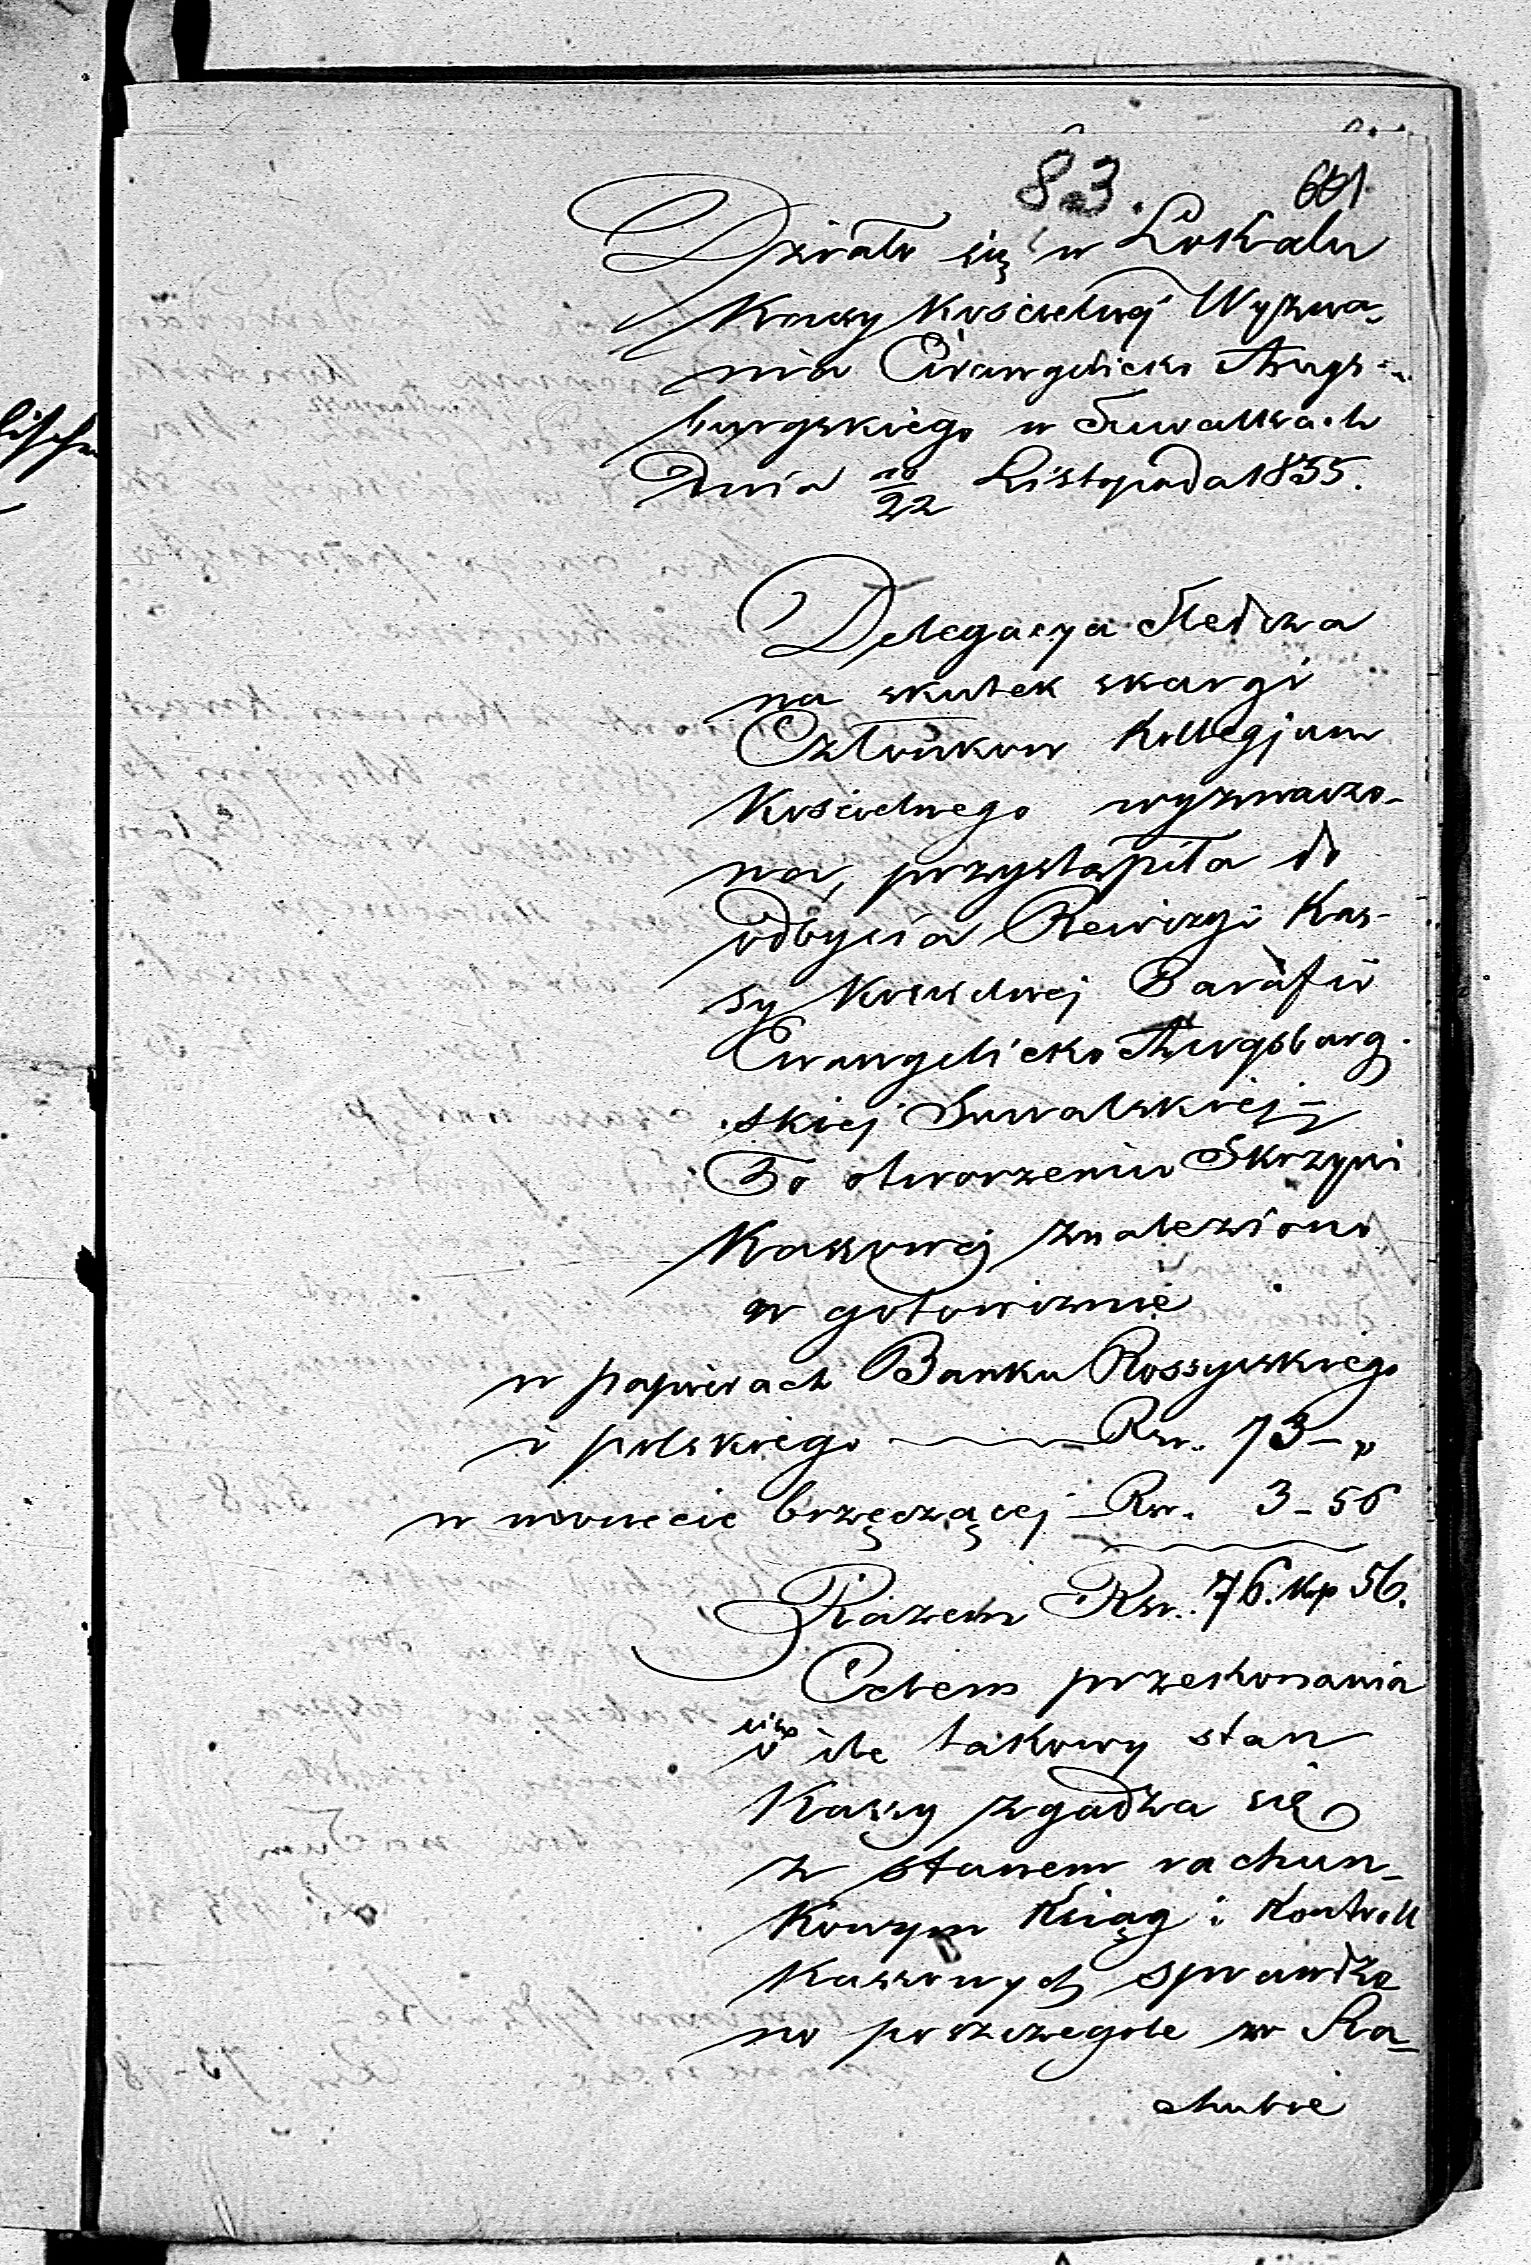 83. 661
Działo się w Lokalu
Kassy Kościelnéj Wyzna-
nia Ewangelicko Augs-
burgskiego w Suwałkach
Dnia 10/22 Listopada 1855.
Delegacya Śledcza
na skutek skargi
Członkow Kollegjum
Kościelnego wyznaczo-
na, przystąpiła do
odbycia Rewizyi Kas-
sy Kościelnej Parafii
Ewangelicko Augsburg-
skiej Suwalskiej -
Po otworzeniu Skrzyni
Kassowej znaleziono
w gotowiznie
w papierach Banku Rossyiskiego
i polskiego Rsr. 73 - „
w monecie brzęczącej - Rsr. 3 - 56
Razem Rsr. 76. kp 56.
Celem przekonania
się
o ile takowy stan
Kassy zgadza się
z stanem rachun-
kowym Ksiąg i Kontroll
Kassowych sprawdzo
no poszczegole w Ra-
chubie